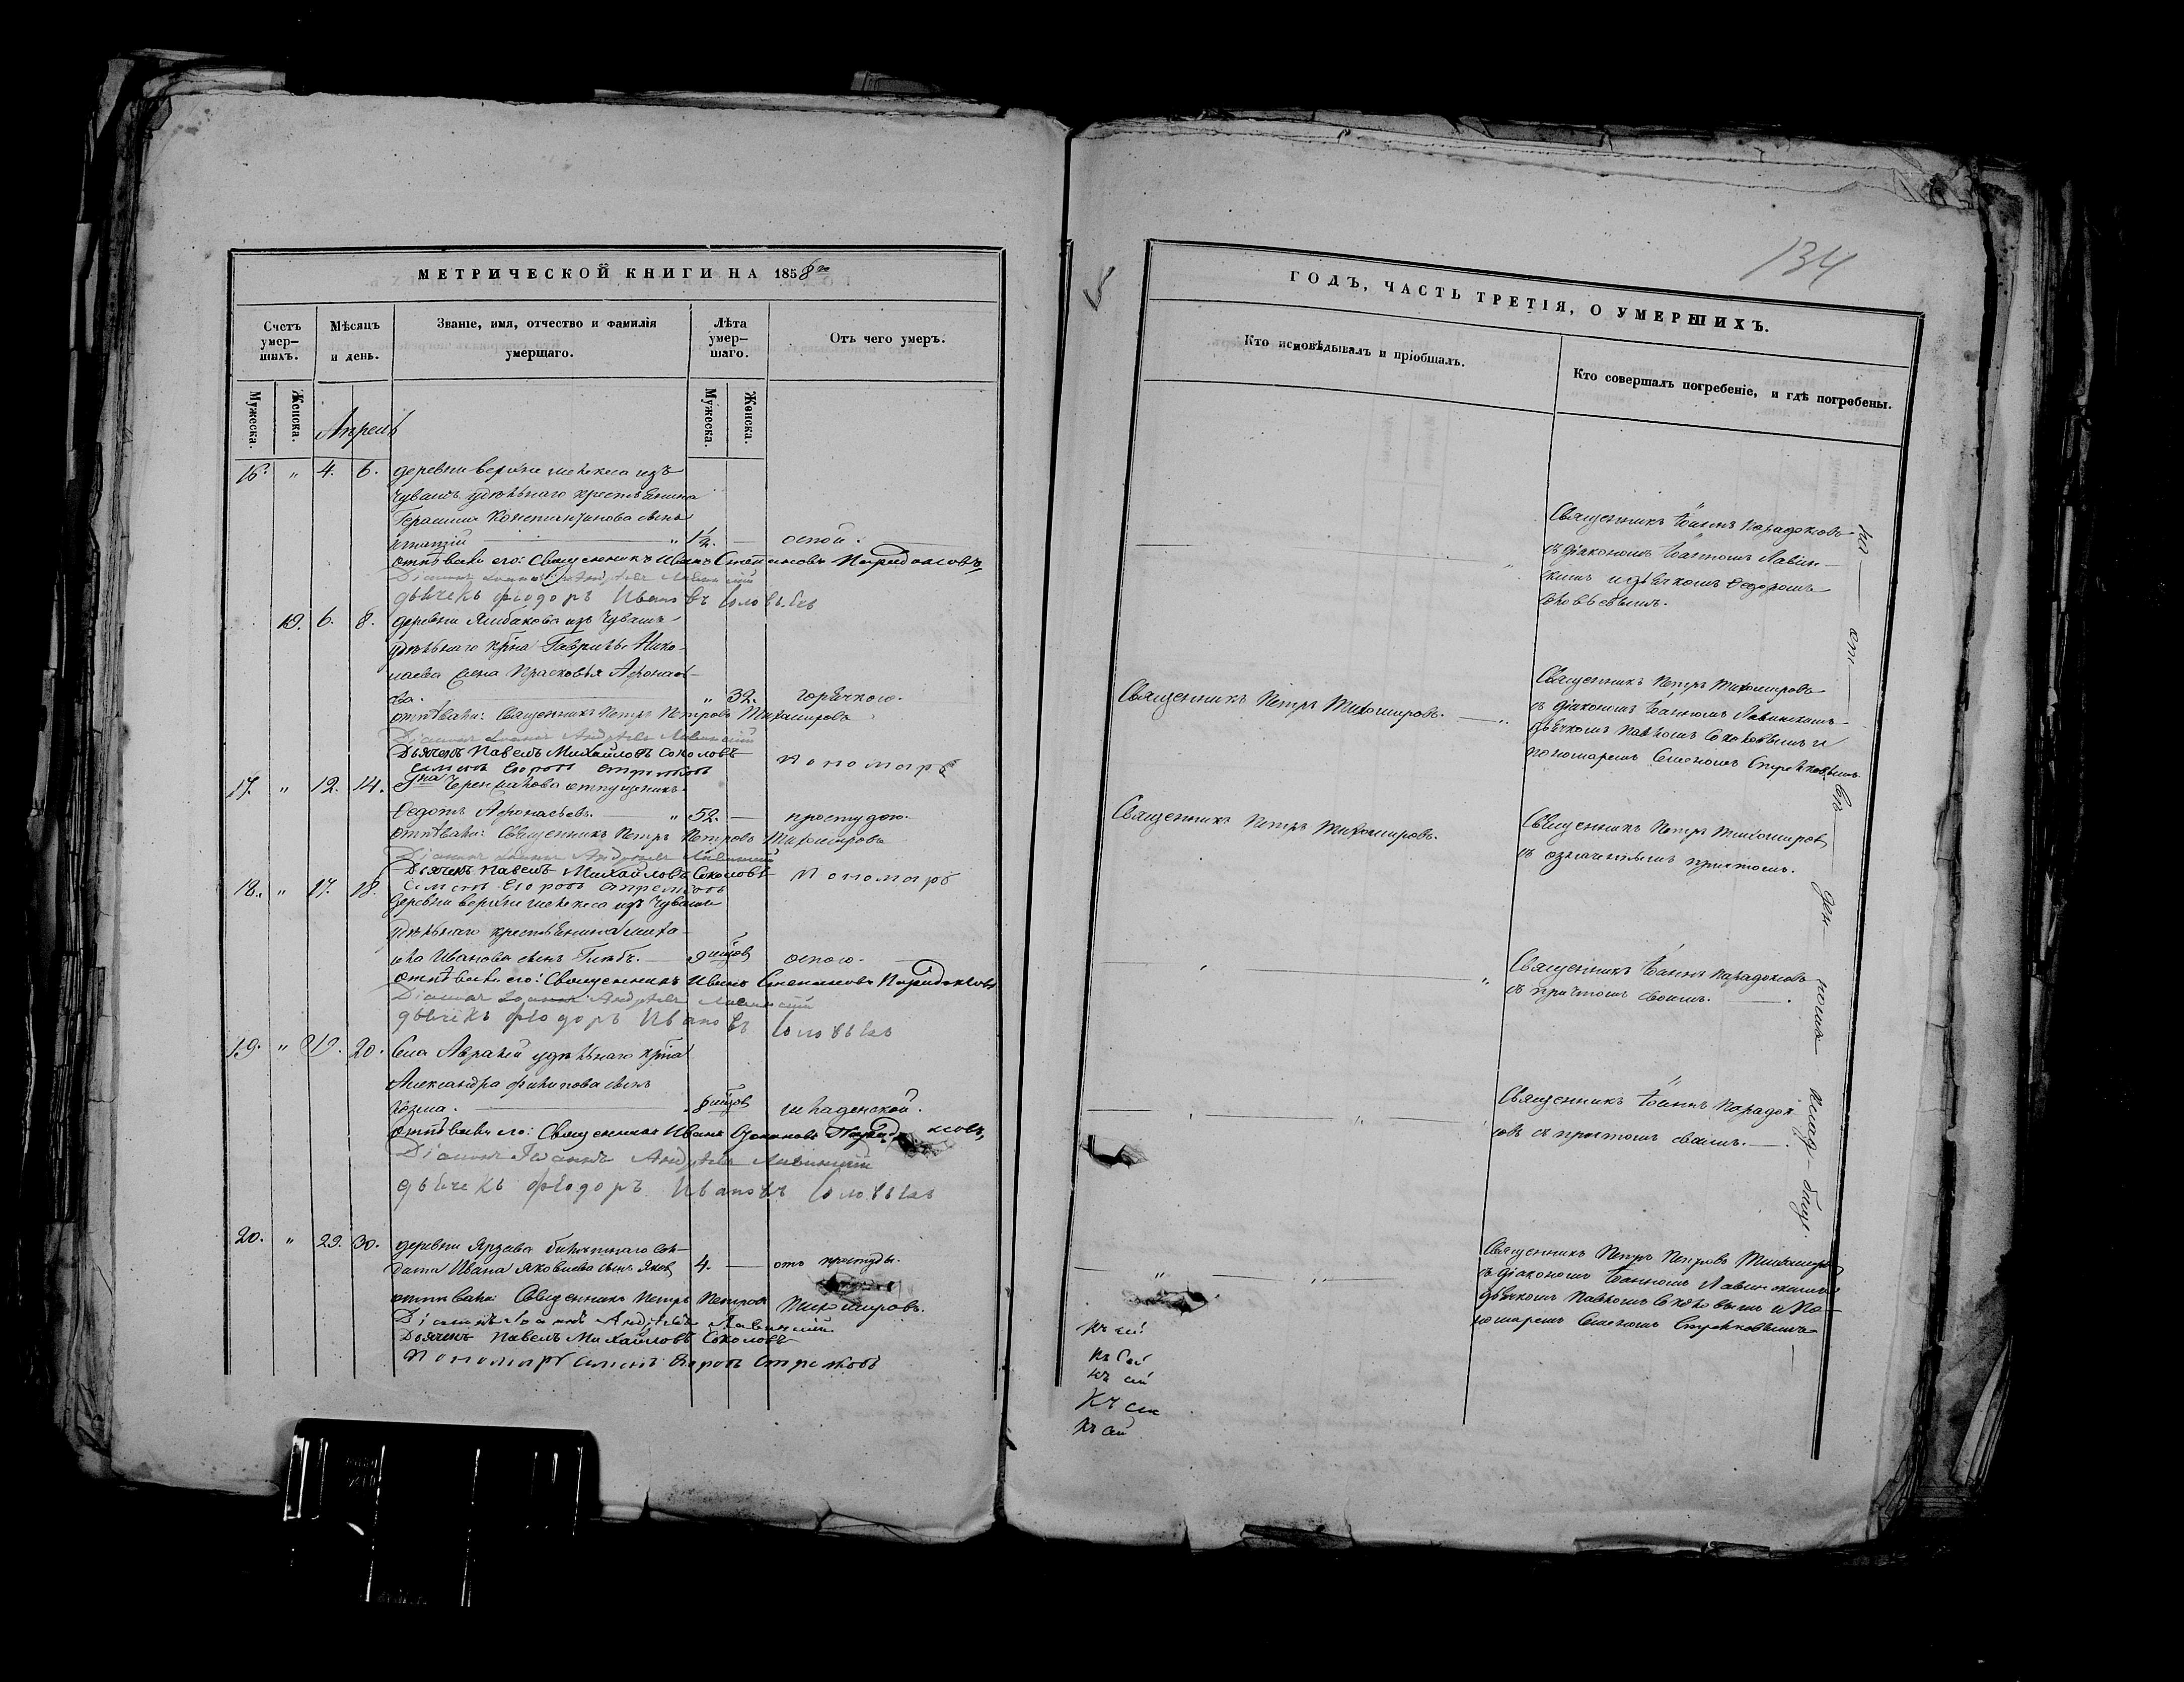 МЕТРИЧЕСКОЙ КНИГИ НА 1858 го
Счетъ умер-шихъ.
Мѣсяцъ и день.
Званіе, имя, отчество и фамилія умершаго.
Лѣта умер-шаго.
Отъ чего умеръ.
Мужеска.
Женска.
Мужеска.
Женска.
Апрель
16. " 4. 6. деревни верхне изъ
Чувашъ удѣльнаго крестьянина
Герасима Константинова сынъ
Игнатій " 1½. — оспой.
отпѣвали его: Священникъ Иванъ Степановъ Парадоксовъ
Діаконъ Іоаннъ Андреевъ Лавинскій
дьячекъ Фіодоръ Ивановъ
10. 6. 8. деревни изъ Чувашъ
удѣльнаго кр̃на Гаврилы Нико-
лаева жена Прасковья Афонась-
ва. " 32. горячкою.
отпѣвали: Священникъ Петръ Петровъ Тихомировъ
Діаконъ Іоаннъ Андреевъ Лавинскій
Дьячекъ Павелъ Михайловъ Соколовъ
Пономарь
Семенъ Егоровъ Стрелковъ
17. " 12. 14. отпущеникъ
Федотъ Афонасьевъ. " 52. — простудою.
Отпѣвали: Священникъ Петръ Петровъ Тихомировъ
Діаконъ Іоаннъ Андреевъ Лавинскій
Дьячекъ Павелъ Михайловъ Соколовъ
Пономарь
Семенъ Егоровъ Стрелковъ
18. " 17. 18. деревни верхне изъ Чувашъ
удѣльнаго крестьянина Миха-
ила Иванова сынъ Глѣбъ. — 9 мѣсцов оспою.
отпѣвали его: Священникъ Иванъ Степановъ Парадоксовъ
Діаконъ Іоаннъ Андреевъ Лавинскій
дьячекъ Фіодоръ Ивановъ
19. " 19. 20. Села удѣльнаго кр̃на
Александра Филипова сынъ
Козма. 8 мѣсцов младенской.
Отпѣвали его: Священникъ Иванъ Степановъ Парадоксовъ
Діаконъ Іоаннъ Андреевъ Лавинскій
дьячекъ Фіодоръ Ивановъ
20. " 29. 30. деревни билетнаго сол-
дата Ивана Яковлева сынъ Яков 4. — отъ простуды.
отпѣвали: Священникъ Петръ Петровъ Тихомировъ.
Діаконъ Іоаннъ Андреевъ Лавинскій
Дьячекъ Павелъ Михайловъ Соколовъ
Пономарь Семенъ Егоровъ Стрелковъ
134
ГОДЪ, ЧАСТЬ ТРЕТІЯ, О УМЕРШИХЪ.
Кто исповѣдывалъ и пріобщалъ.
Кто совершалъ погребеніе, и гдѣ погребены.
Священникъ Іоаннъ Парадоксовъ
съ діакономъ Іоанномъ Лавин-
скимъ и дьячкомъ Федоромъ
Священникъ Петръ Тихомировъ.
Священникъ Петръ Тихомировъ
съ діакономъ Іоанномъ Лавинскимъ
дьячкомъ Павломъ Соколовымъ и
пономаремъ Семеномъ Стрелковымъ
Священникъ Петръ Тихомировъ.
Священникъ Петръ Тихомиров
съ означеннымъ притомъ.
Священникъ Іоаннъ Парадоксовъ
съ причтомъ своимъ.
Священникъ Іоаннъ Парадок
совъ съ притомъ своимъ.
Священникъ Петръ Петровъ Тихомиров
съ діакономъ Іоанномъ Лавинскимъ
дьячкомъ Павломъ Соколовымъ и По-
номаремъ Семеномъ Стрелковымъ
Къ сей
Къ сей
Къ сей
Къ сей
Къ сей